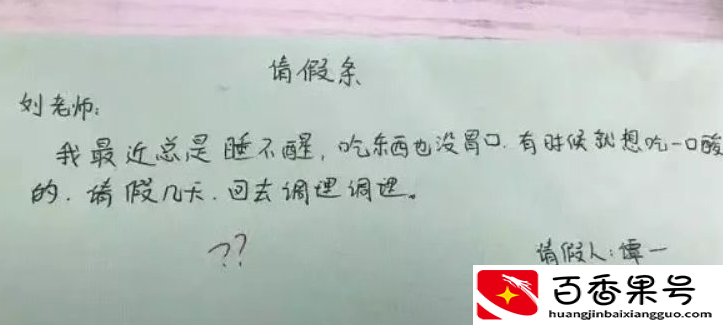 请假条
刘老师:
我最近总是睡不醒,吃东西也没胃口.有时候就想吃一口酸
的.请假几天.回去调理调理。
??
请假人:谭一
百香果号
huangjinbaixiangguo.com